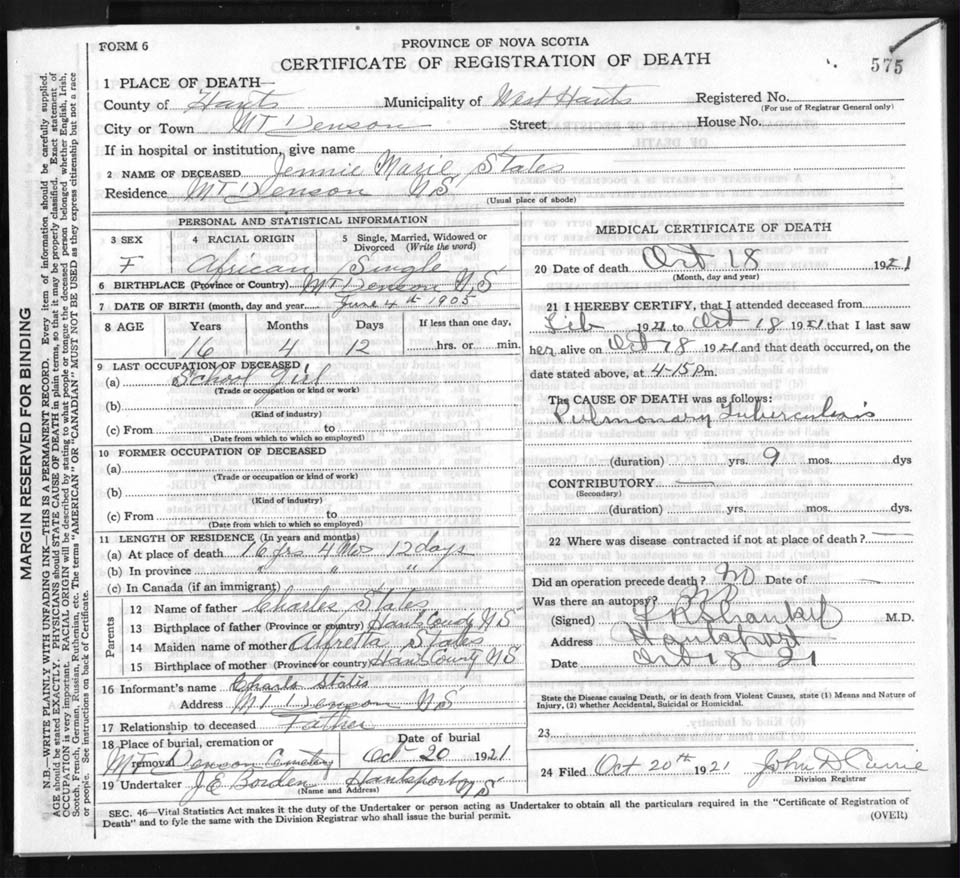 FORM 6
PROVINCE OF NOVA SCOTIA
CERTIFICATE OF REGISTRATION OF DEATH
575
1 PLACE OF DEATH—
County of Hants Municipality of West Hants Registered No.
(For use of Registrar General only)
City or Town MT Denson Street House No.
If in hospital or institution, give name
2 NAME OF DECEASED Jennie Marie States
Residence MT Denson N S
(Usual place of abode)
PERSONAL AND STATISTICAL INFORMATION
3 SEX 4 RACIAL ORIGIN 5 Single, Married, Widowed or Divorced (Write the word)
F African Single
6 BIRTHPLACE (Province or Country) MT Denson N,S
7 DATE OF BIRTH (month, day and year) June 4th 1905
8 AGE Years Months Days If less than one day,
16 4 12 hrs. or min.
9 LAST OCCUPATION OF DECEASED
(a) School Girl
(Trade or occupation or kind or work)
(b)
(Kind of industry)
(c) From to
(Date from which to which so employed)
10 FORMER OCCUPATION OF DECEASED
(a)
(Trade or occupation or kind of work)
(b)
(Kind of industry)
(c) From to
(Date from which to which so employed)
11 LENGTH OF RESIDENCE (In years and months)
(a) At place of death 16 yrs 4 Mos 12 days
(b) In province " " "
(c) In Canada (if an immigrant)
Parents
12 Name of father Charles States
13 Birthplace of father (Province or country) Hants County N S
14 Maiden name of mother Alfretta States
15 Birthplace of mother (Province or country) Hants County N S
16 Informant's name Charls States
Address MT Denson N S
17 Relationship to deceased Father
18 Place of burial, cremation or removal Date of burial
MT Denson Cemetery Oct 20 1921
19 Undertaker J.E. Borden Hantsport N S
(Name and Address)
MEDICAL CERTIFICATE OF DEATH
20 Date of death Oct 18 1921
(Month, day and year)
21 I HEREBY CERTIFY, that I attended deceased from
Feb 1921 to Oct 18 1921 that I last saw
her alive on Oct 18 1921 and that death occurred, on the
date stated above, at 4-15 Pm.
The CAUSE OF DEATH was as follows:
Pulmonary Tuberculosis
(duration) yrs. 9 mos. dys
CONTRIBUTORY —
(Secondary)
(duration) yrs. mos. dys.
22 Where was disease contracted if not at place of death? —
Did an operation precede death? No Date of —
Was there an autopsy? No
(Signed) M.D.
Address Hantsport
Date Oct 18 21
State the Disease causing Death, or in death from Violent Causes, state (1) Means and Nature of
Injury, (2) whether Accidental, Suicidal or Homicidal.
23
24 Filed Oct 20th 1921 John D Currie
Division Registrar
SEC. 46—Vital Statistics Act makes it the duty of the Undertaker or person acting as Undertaker to obtain all the particulars required in the "Certificate of Registration of
Death" and to fyle the same with the Division Registrar who shall issue the burial permit.
(OVER)
MARGIN RESERVED FOR BINDING
N.B.—WRITE PLAINLY WITH UNFADING INK—THIS IS A PERMANENT RECORD. Every item of information should be carefully supplied.
AGE should be stated EXACTLY. PHYSICIANS should STATE CAUSE OF DEATH in plain terms, so that it may be properly classified. Exact statement of
OCCUPATION is very important. RACIAL ORIGIN will be described by stating to what people or tongue the deceased person belonged whether English, Irish,
Scotch, French, German, Russian, Ruthenian, etc. The terms "AMERICAN" OR "CANADIAN" MUST NOT BE USED as they express citizenship but not a race
or people. See instructions on back of Certificate.